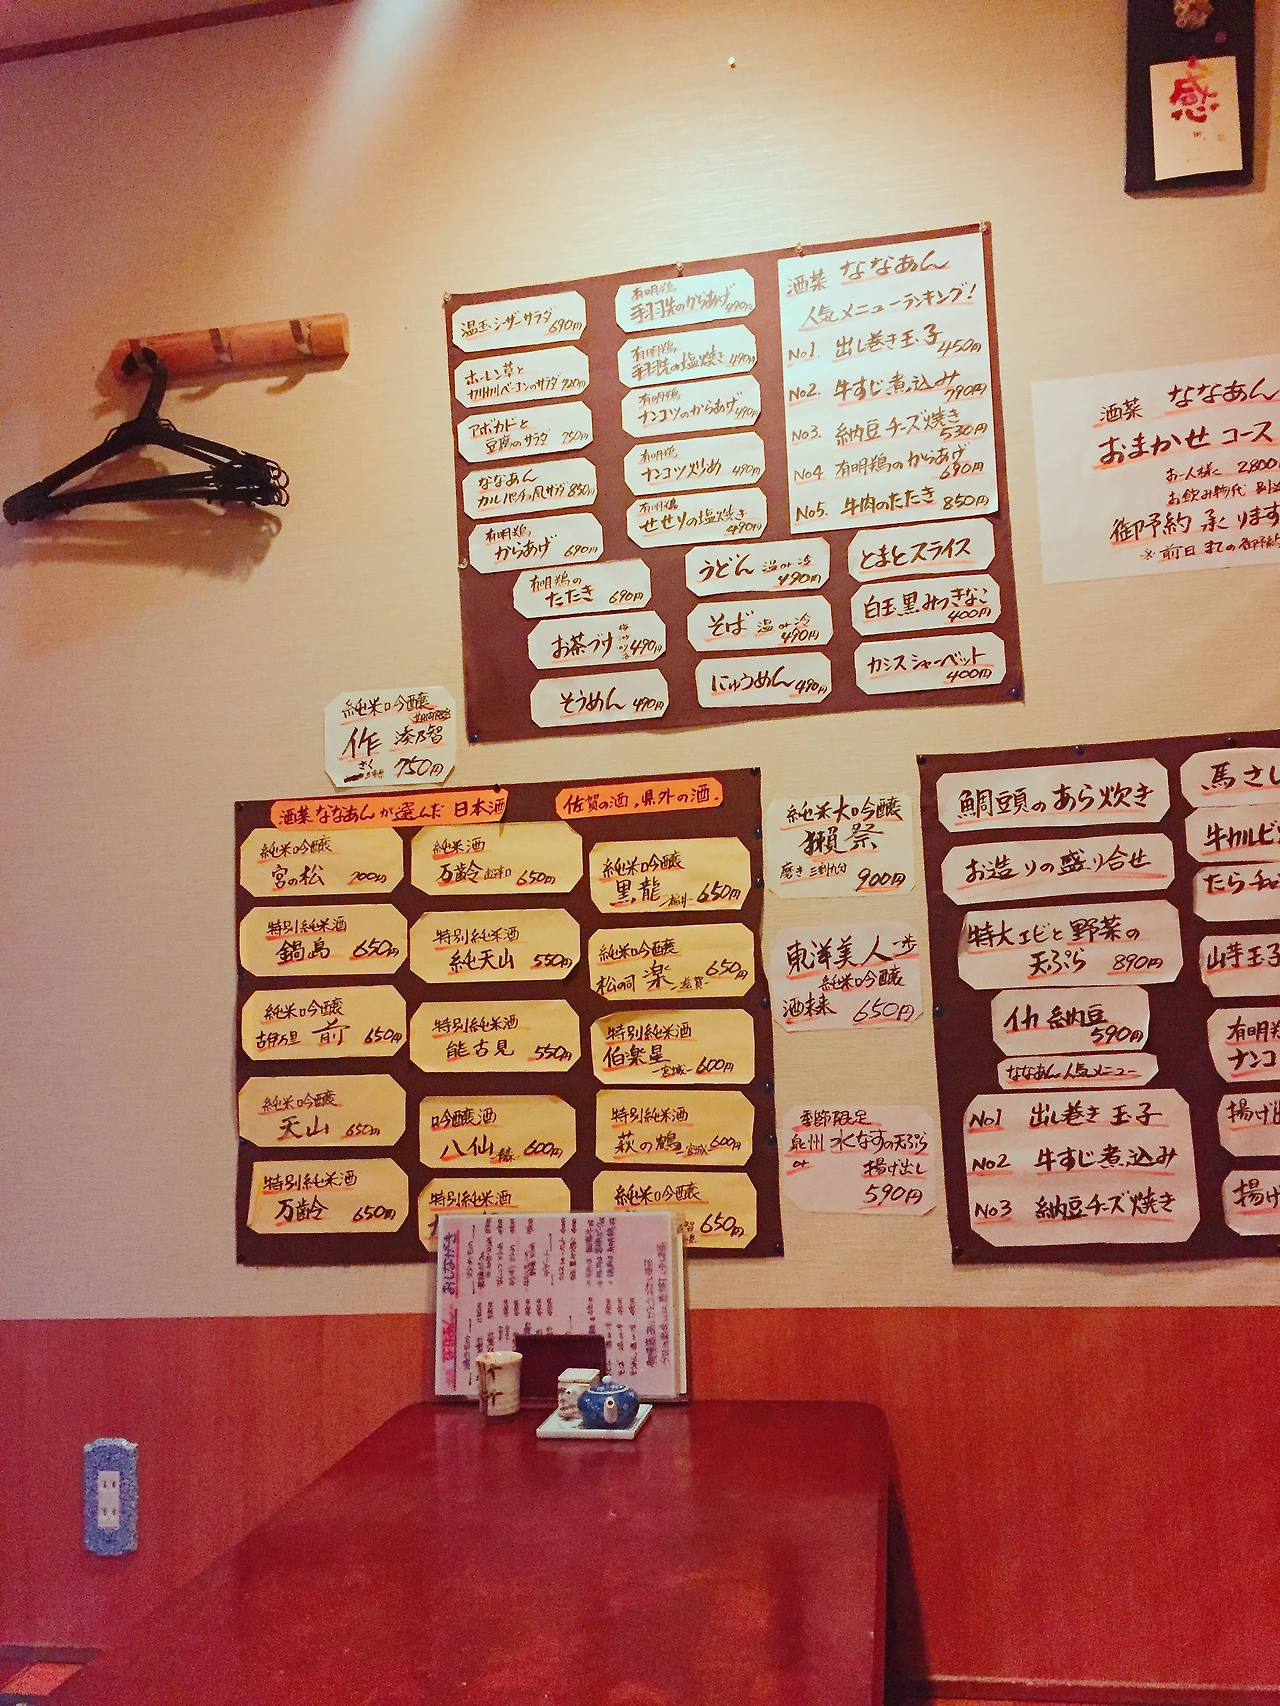 感
温玉シーザーサラダ
690円
ホーレン草と
カリカリベーコンのサラダ 720円
アボカドと
豆腐のサラダ 750円
ななあん
カルパッチョ風サラダ 850円
有明鶏
からあげ 690円
有明鶏
手羽先のからあげ
490円
有明鶏
手羽先の塩焼き 490円
有明鶏
ナンコツのからあげ
490円
有明鶏
ナンコツ炒め 490円
有明鶏
せせりの塩焼き
490円
酒菜 ななあん
人気メニューランキング!
No1. 出し巻き玉子
450円
No2. 牛すじ煮込み
790円
No3. 納豆チーズ焼き
530円
No4 有明鶏のからあげ
690円
No5. 牛肉のたたき 850円
有明鶏の
たたき 690円
お茶づけ 490円
そうめん 490円
うどん 温or冷
490円
そば 温or冷
490円
にゅうめん 490円
とまとスライス
白玉黒みつきなこ
400円
カシスシャーベット
400円
酒菜 ななあん
おまかせコース
お一人様 2800
お飲み物代 別途
御予約承ります
※前日までの御予約
純米吟醸
作 湊乃智
さく
750円
酒菜ななあんが選んだ 日本酒
佐賀の酒,県外の酒.
純米吟醸
宮の松 700円
特別純米酒
鍋島 650円
純米吟醸
古伊万里 前 650円
純米吟醸
天山 650円
特別純米酒
万齢 650円
純米酒
万齢 超辛口 650円
特別純米酒
純天山 550円
特別純米酒
能古見 550円
吟醸酒
八仙 600円
特別純米酒
純米吟醸
黒龍 -福井- 650円
純米吟醸
松の司 楽 -滋賀- 650円
特別純米酒
伯楽星
-宮城- 600円
特別純米酒
萩の鶴 宮城 600円
純米吟醸
650円
純米大吟醸
獺祭
磨き 三割九分 900円
東洋美人 一歩
純米吟醸
酒未来 650円
季節限定
泉州 水なすの天ぷら
or 揚げ出し
590円
鯛頭のあら炊き
お造りの盛り合せ
特大エビと野菜の
天ぷら 890円
イカ納豆
590円
ななあん人気メニュー
No1 出し巻き玉子
No2 牛すじ煮込み
No3 納豆チーズ焼き
馬さし
牛カルビ
たらチャ
山芋玉子
有明鶏
ナンコ
揚げ出
揚げ
おしながき